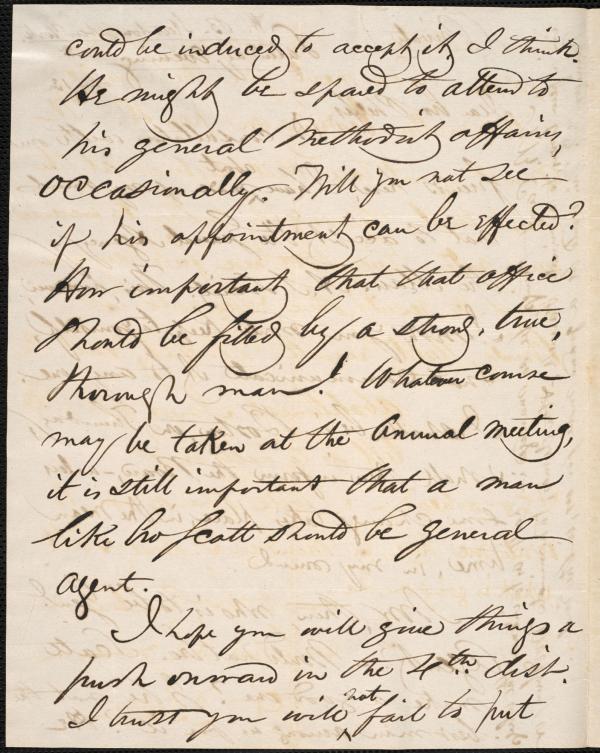 could be induced to accept it, I think.
He might be spared to attend to
his general Methodist affairs,
occasionally. Will you not see
if his appointment can be effected?
How important that that office
should be filled by a strong, true,
thorough man! Whatever course
may be taken at the Annual meeting,
it is still important that a man
like bro Scott should be general
agent.
I hope you will give things a
push onward in the 4th. dist.
I trust you will not fail to put